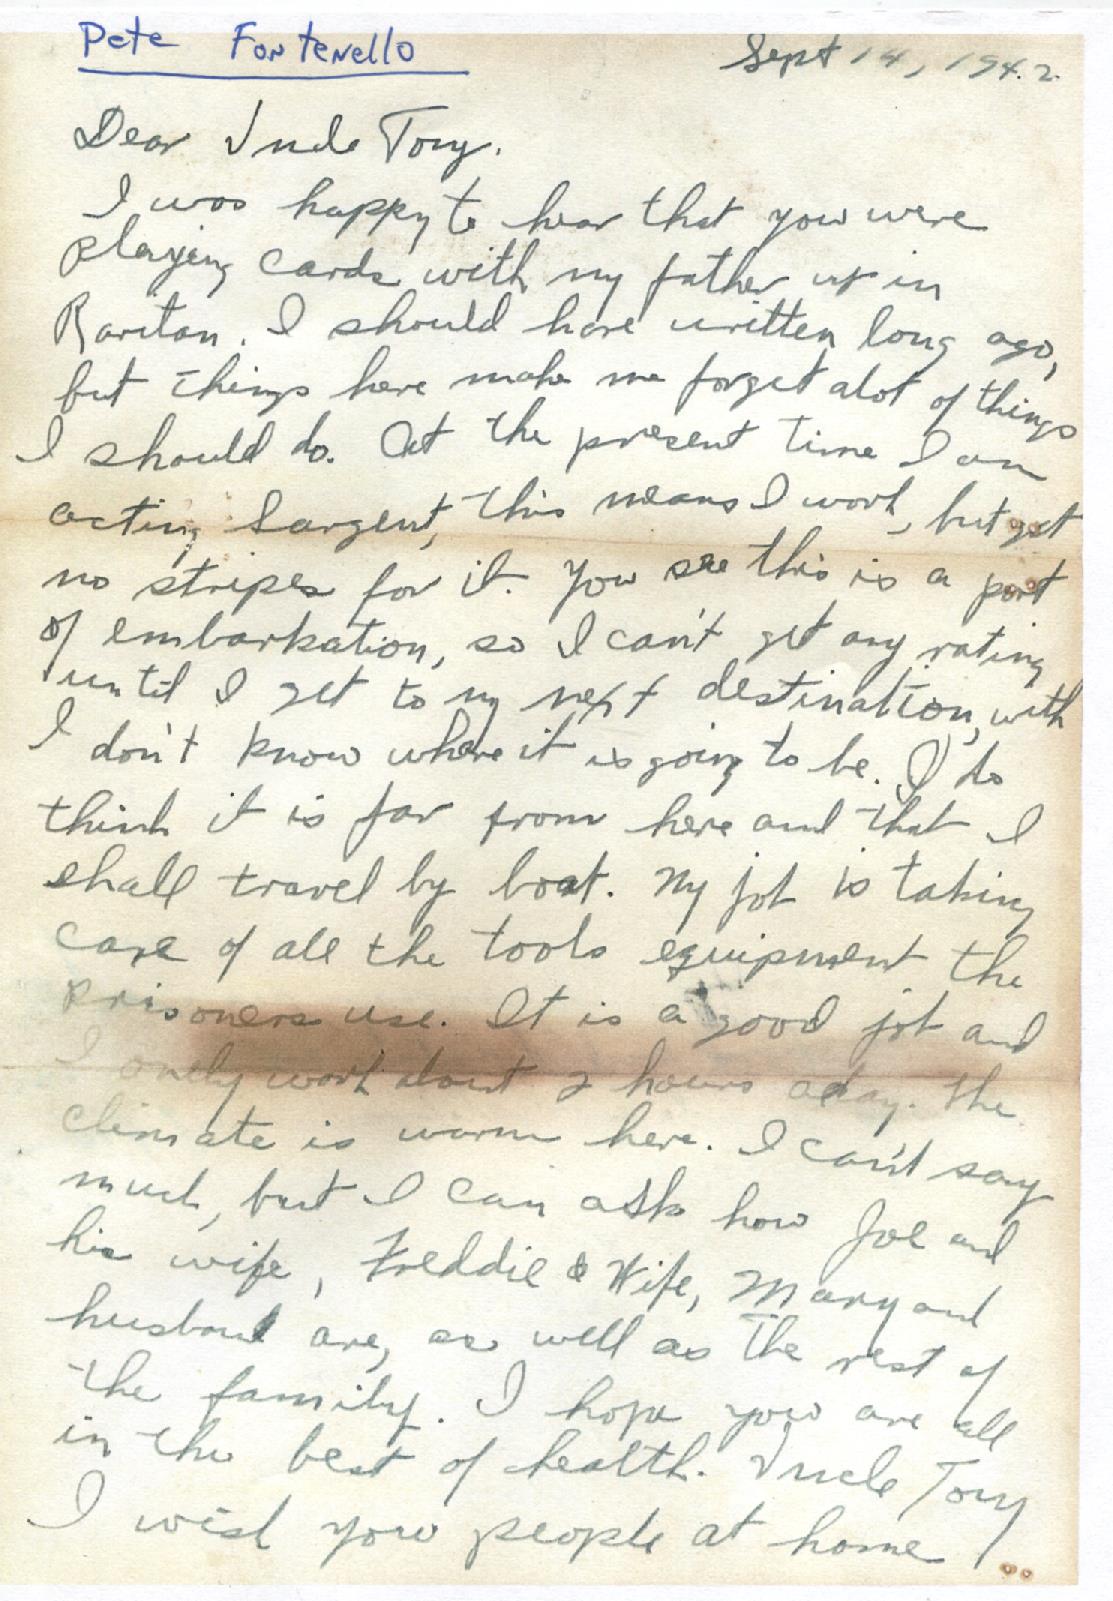 Pete Fontenello
Sept 14, 1942.
Dear Uncle Tony.
I was happy to hear that you were
playing cards with my father up in
Raritan. I should have written long ago,
but things here make me forget alot of things
I should do. At the present time I am
acting Sargent, this means I work, but get
no stripes for it. You see this is a port
of embarkation, so I can't get any rating
until I get to my next destination, with
I don't know where it is going to be. I do
think it is far from here and that I
shall travel by boat. My job is taking
care of all the tools equipment the
prisoners use. It is a good job and
I onely work about 2 hours aday. The
climate is warm here. I can't say
much, but I can ask how Joe and
his wife, Freddie & Wife, Mary and
husband are, as well as the rest of
the family. I hope you are all
in the best of health. Uncle Tony
I wish you people at home